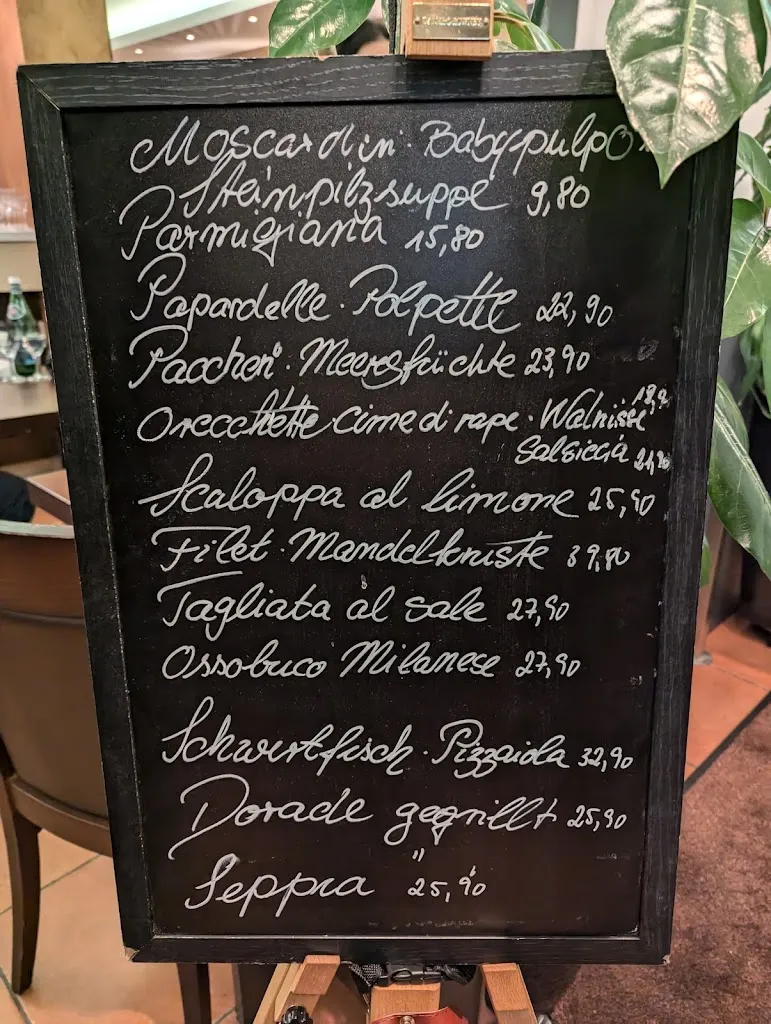 Moscardini · Babypulpo
Steinpilzsuppe 9,80
Parmigiana 15,80
Papardelle · Polpette 22,90
Paccheri · Meeresfrüchte 23,90
Orecchiette cime di rape · Walnüsse
Salsiccia 21,90
Scaloppa al limone 25,90
Filet · Mandelkruste 39,80
Tagliata al sale 27,90
Ossobuco Milanese 27,90
Schwertfisch · Pizzaiola 32,90
Dorade gegrillt 25,90
Seppia " 25,90